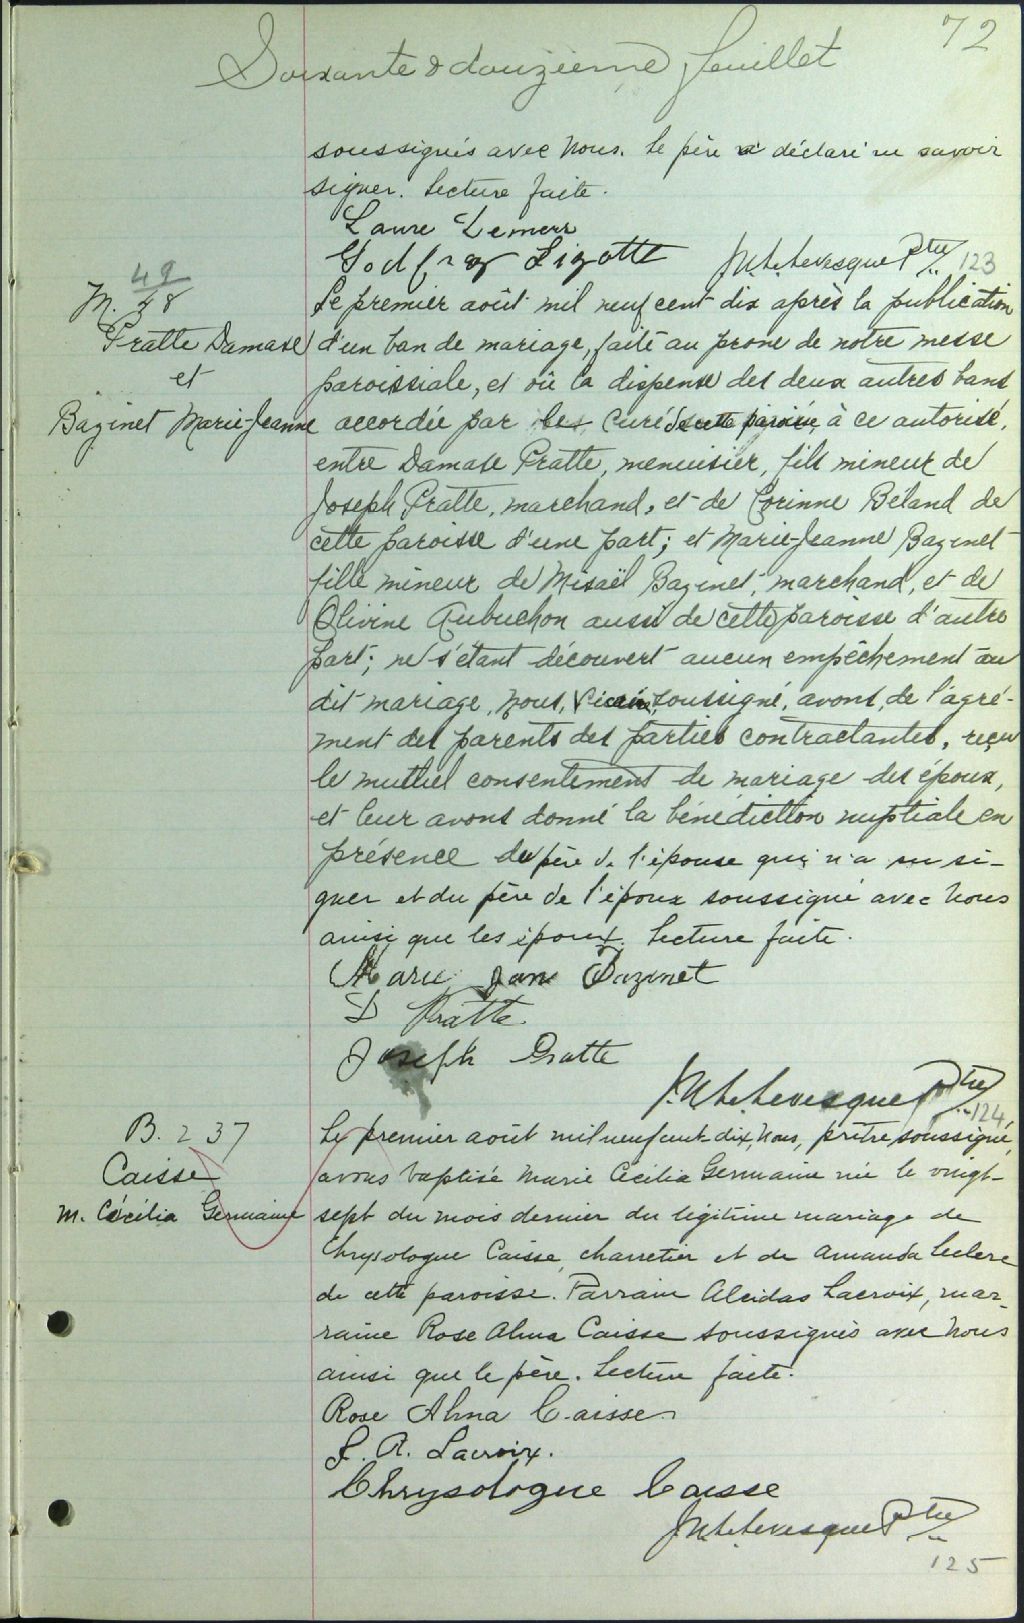 72
Soixante & douzième feuillet
soussignés avec nous. Le père a déclaré ne savoir
signer. Lecture faite.
Laure Lemerr
Godfray Lizotte J.W.L. Levesque Ptre 123
49
M. 58
Pratte Damase
et
Bazinet Marie-Jeanne
Le premier août mil neuf cent dix après la publication
d'un ban de mariage, faite au prone de notre messe
paroissiale, et vû la dispense des deux autres bans
accordée par le curé de cette paroisse à ce autorisé,
entre Damase Pratte, menuisier, fils mineur de
Joseph Pratte, marchand, et de Corinne Béland de
cette paroisse d'une part; et Marie-Jeanne Bazinet
fille mineur de Misaël Bazinet, marchand, et de
Olivine Aubuchon aussi de cette paroisse d'autre
part; ne s'étant découvert aucun empêchement au
dit mariage, nous, vicaire, soussigné, avons, de l'agré-
ment des parents des parties contractantes, reçu
le mutuel consentement de mariage des époux,
et leur avons donné la bénédiction nuptiale en
présence du père de l'épouse qui n'a su si-
gner et du père de l'époux soussigné avec nous
ainsi que les époux. Lecture faite.
Marie Jane Bazinet
D Pratte.
Joseph Pratte
J.W.L. Levesque Ptre 124
B. 237
Caisse
M. Cécilia Germaine
Le premier août mil neuf cent dix, nous, prêtre soussigné,
avons baptisé Marie Cécilia Germaine née le vingt-
sept du mois dernier du légitime mariage de
Chrysologue Caisse, charretier et de Amanda Leclerc
de cette paroisse. Parrain Alcidas Lacroix, mar-
raine Rose Alma Caisse soussignés avec nous
ainsi que le père. Lecture faite.
Rose Alma Caisse
J. A. Lacroix.
Chrysologue Caisse
J.W.L. Levesque Ptre
125